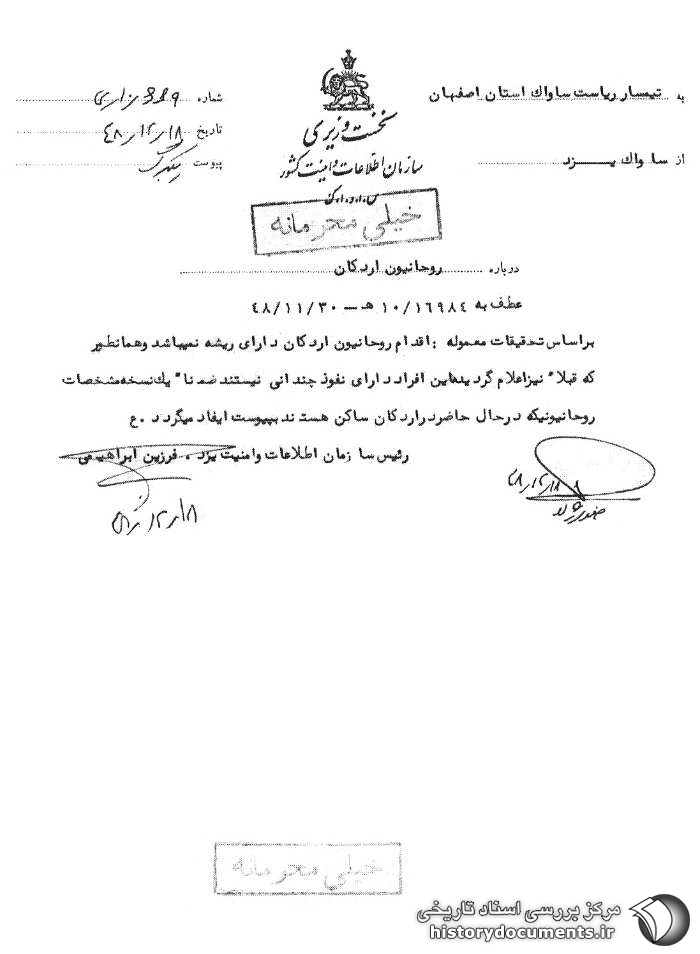 به تیمسار ریاست ساواك استان اصفهان
از ساواك یزد
نخست وزیری
سازمان اطلاعات و امنیت کشور
س.ا.و.ا.ک
شماره
تاریخ ۴۸/۱۲/۱۸
پیوست
خیلی محرمانه
درباره روحانیون اردکان
عطف به ۱۰/۱۶۹۸٤ هـ - ٤٨/۱۱/۳۰
براساس تحقیقات معموله : اقدام روحانیون اردکان دارای ریشه نمیباشد وهمانطور
که قبلا" نیزاعلام گردیدهاین افراد دارای نفوذ چندانی نیستند ضمنا" یك نسخه مشخصات
روحانیونیکه درحال حاضر دراردکان ساکن هستند بپیوست ایفاد میگردد . ع
رئیس سازمان اطلاعات وامنیت یزد . فرزین ابراهیمی
۴۸/۱۲/۱۸
۴۸/۱۲/۱۸
خیلی محرمانه
مرکز بررسی اسناد تاریخی
historydocuments.ir